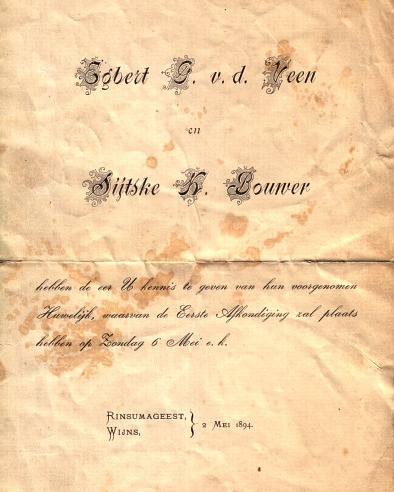 Egbert G. v. d. Veen
en
Sijtske K. Bouwer
hebben de eer U kennis te geven van hun voorgenomen
Huwelijk, waarvan de Eerste Afkondiging zal plaats
hebben op Zondag 6 Mei e. k.
RINSUMAGEEST, } 2 MEI 1894.
WIJNS,